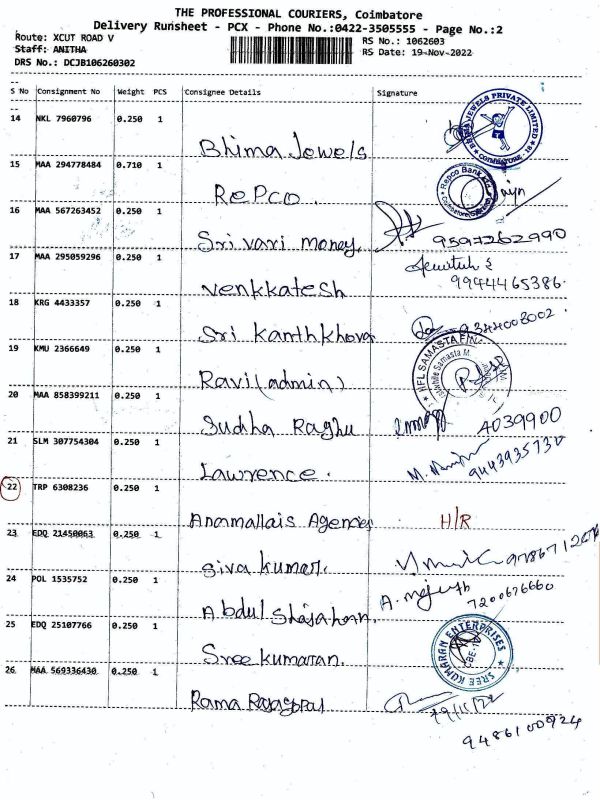 THE PROFESSIONAL COURIERS, Coimbatore
Delivery Runsheet - PCX - Phone No.:0422-3505555 - Page No.:2
Route: XCUT ROAD V RS No.: 1062603
Staff: ANITHA RS Date: 19-Nov-2022
DRS No.: DCJB106260302
S No Consignment No Weight PCS Consignee Details Signature
14 NKL 7960796 0.250 1 Bhima Jewels
JEWELS PRIVATE LIMITED COIMBATORE
15 MAA 294778484 0.710 1 REPCO.
Repco Bank Ltd Coimbatore
16 MAA 567263452 0.250 1 Sri vari money. 9597262990
17 MAA 295059296 0.250 1 Venkkatesh 9944465386
18 KRG 4433357 0.250 1 Sri Kanthkhova 9344003002
19 KMU 2366649 0.250 1 Ravi (admin)
20 MAA 858399211 0.250 1 Sudha Raghu 4039900
21 SLM 307754304 0.250 1 Lawrence. 9443935730
22 TRP 6308236 0.250 1 Anamallais Agencies H/R
23 EDQ 21450063 0.250 1 Siva kumar.
24 POL 1535752 0.250 1 Abdul Shajahan. 7200676660
25 EDQ 25107766 0.250 1 Sree Kumaran.
SREE KUMARAN ENTERPRISES
26 MAA 569336430 0.250 1 Rama Rajagopal
19/11/22
9486100924